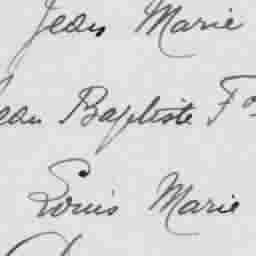 Jean Marie
ean Baptiste Fo
Louis Marie